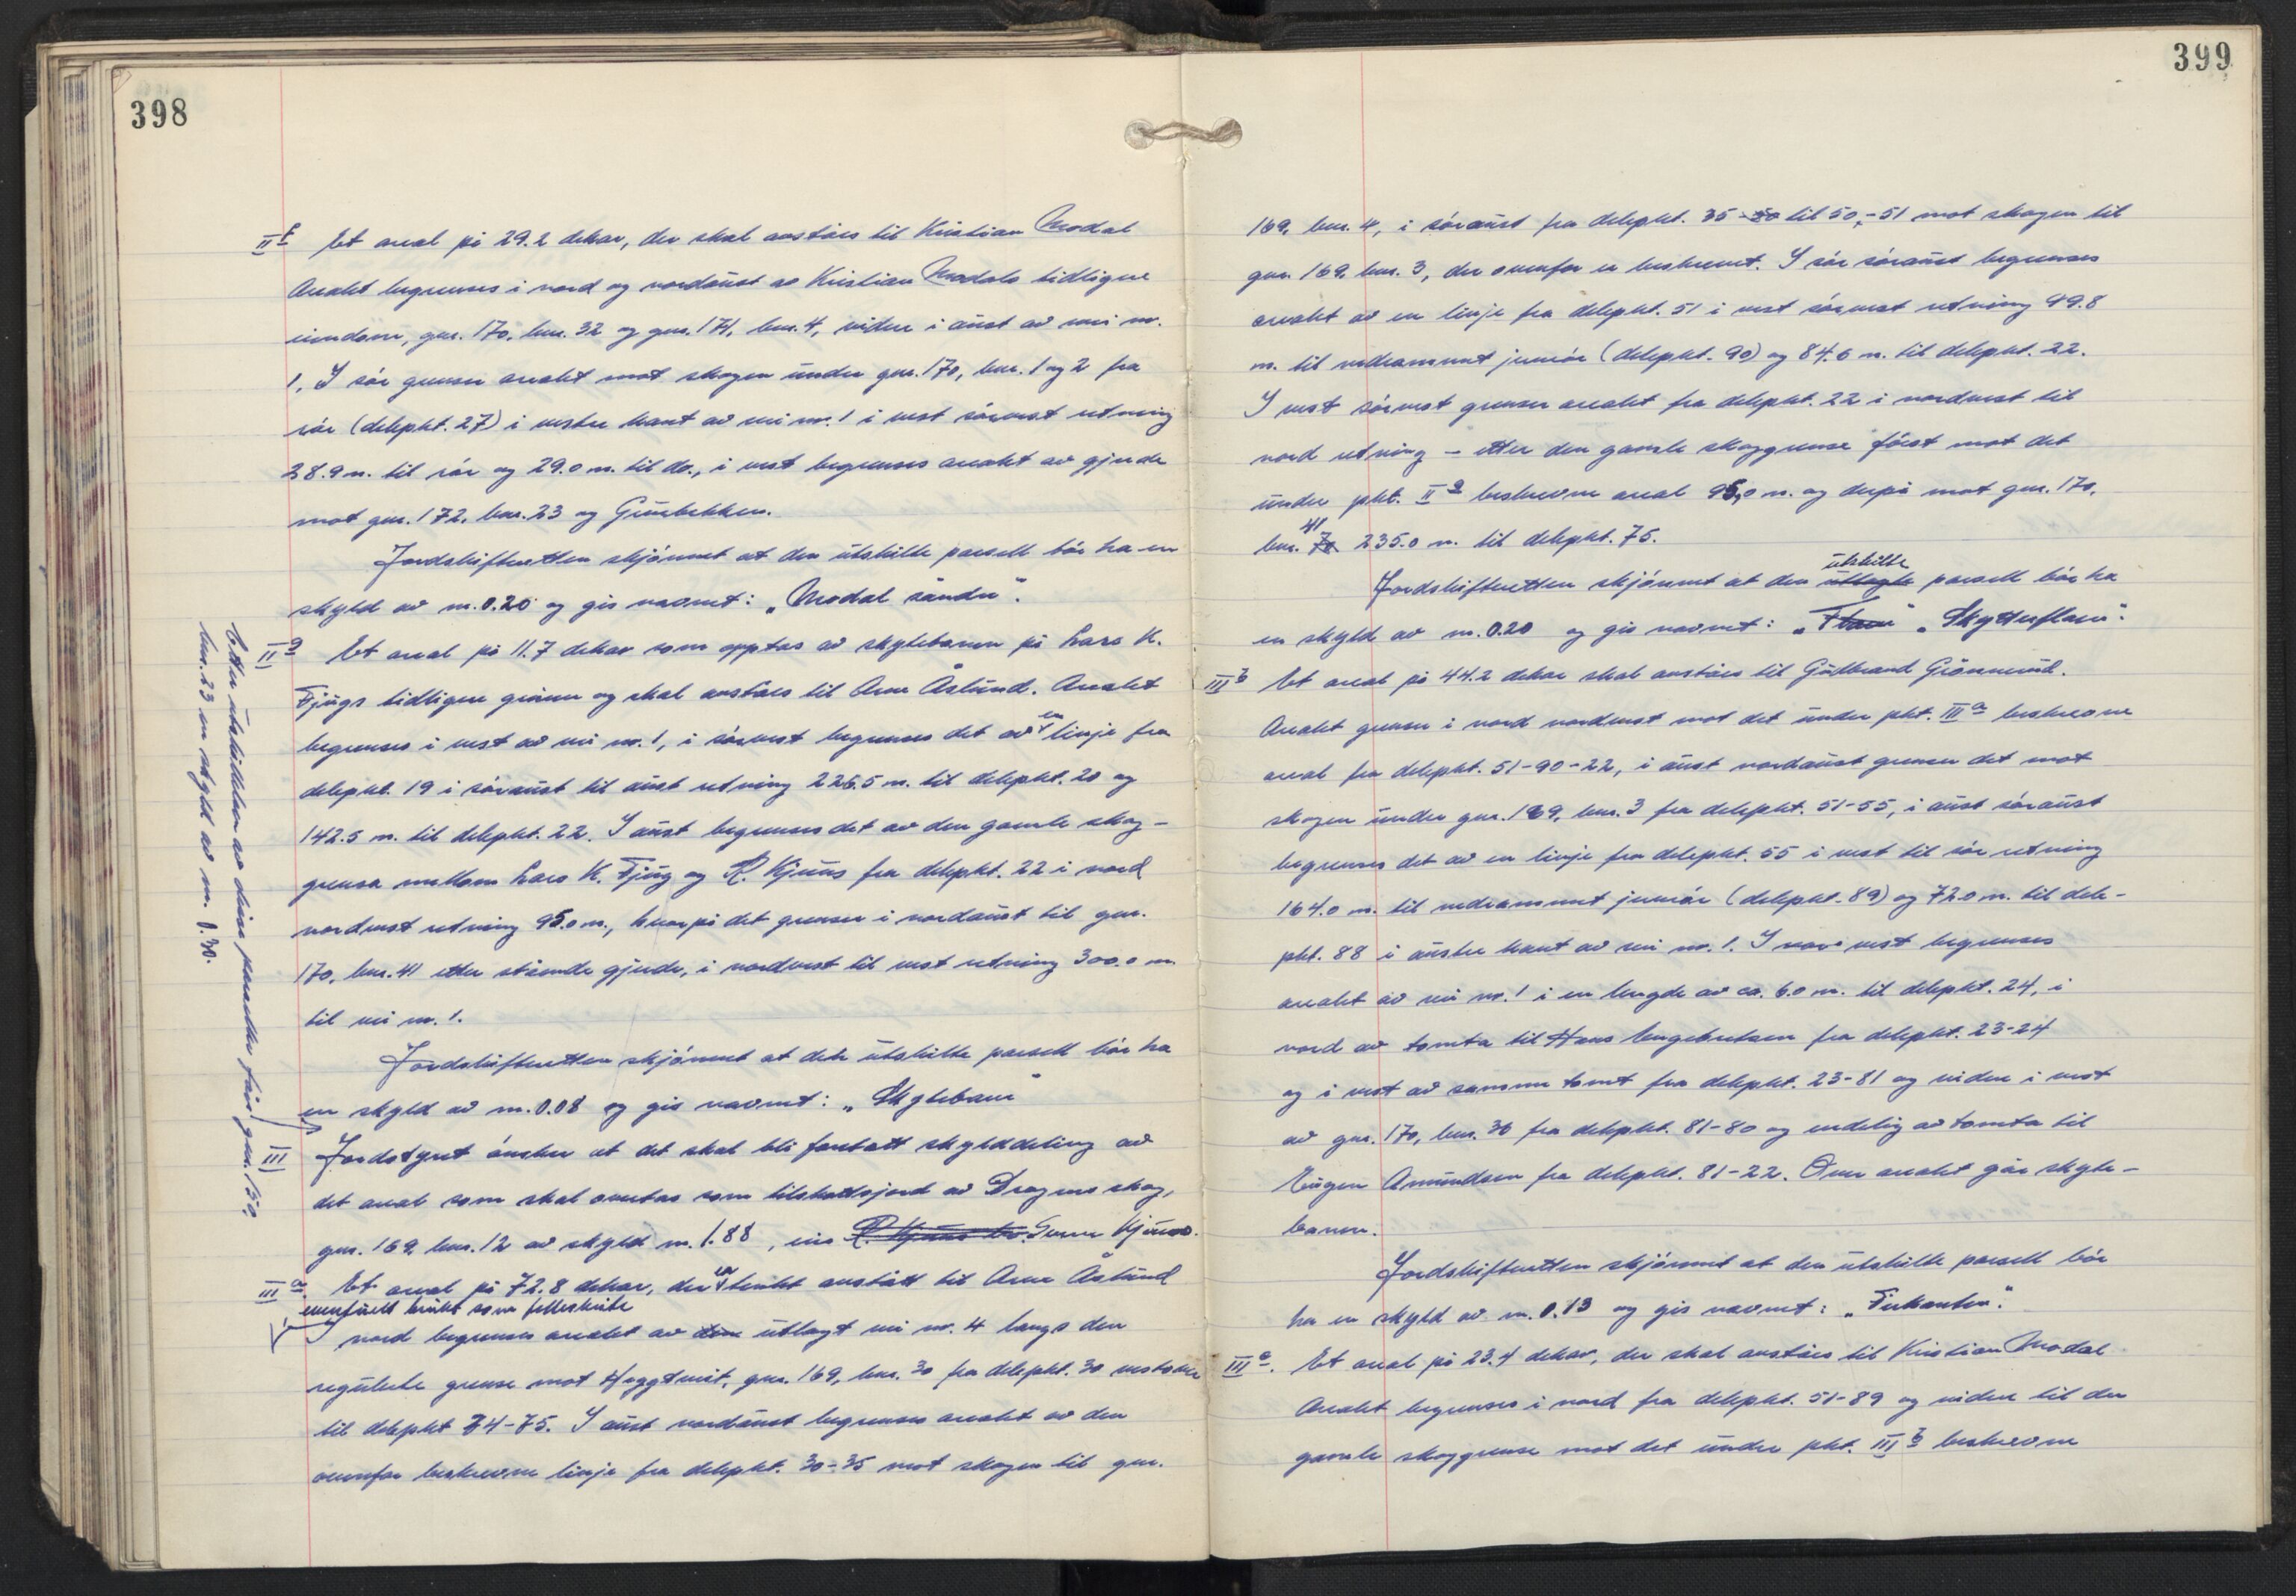 398
II f Et areal på 29.2 dekar, der skal avståes til Kristian Modal
Arealet begrenses i nord og nordaust av Kristian Modals tidligere
eiendom, gnr. 170, bnr. 32 og gnr. 171, bnr. 4, videre i aust av vei nr.
1. I sør grenser arealet mot skogen under gnr. 170, bnr. 1 og 2 fra
rør (delepkt. 27) i vestre kant av vei nr. 1 i vest sørvest retning
38.9 m. til rør og 29.0 m. til do., i vest begrenses arealet av gjerde
mot gnr. 172, bnr. 23 og
Jordskifteretten skjønnet at den utskilte parsell bør ha en
skyld av m. 0.20 og gis navnet: „Modal søndre".
II g Et areal på 11.7 dekar som opptas av skytebanen på Lars K.
Fjugs tidligere grunn og skal avståes til Arne Åslund. Arealet
begrenses i vest av vei nr. 1, i sørvest begrenses det av en linje fra
delepkt. 19 i søraust til aust retning 226.5 m. til delepkt. 20 og
142.5 m. til delepkt. 22. I aust begrenses det av den gamle skog-
grensa mellom Lars K. Fjug og R. Kjuus fra delepkt. 22 i nord
nordvest retning 95.0 m., hvorpå det grenser i nordaust til gnr.
170, bnr. 41 etter stående gjerde, i nordvest til vest retning 300.0 m.
til vei nr. 1.
Jordskifteretten skjønnet at dete utskilte parsell bør ha
en skyld av m. 0.08 og gis navnet: „Skytebane"
Etter utskillelsen av disse parseller får gnr. 150,
bnr. 23 en skyld av m. 1.30.
III Jordstyret ønsker at det skal bli foretatt skylddeling av
det areal som skal avsettes som tilskottsjord av Dragens skog,
gnr. 169, bnr. 12 av skyld m. 1.88, eies R. Kjuus Kjuus.
III a. Et areal på 72.8 dekar, der er tenkt avstått til Arne Åslund
eventuelt brukt som fellesbeite
I nord begrenses arealet av den utlagt vei nr. 4 langs den
regulerte grense mot Hoggtveit, gnr. 169, bnr. 30 fra delepkt. 30 vestover
til delepkt 74-75. I aust nordaust begrenses arealet av den
ovenfor beskrevne linje fra delepkt. 30-35 mot skogen til gnr.
399
169, bnr. 4, i søraust fra delepkt. 35-50 til 50,-51 mot skogen til
gnr. 169, bnr. 3, der ovenfor er beskrevet. I sør søraust begrenses
arealet av en linje fra delepkt. 51 i vest sørvest retning 99.8
m. til nedrammet jernrør (delepkt. 90) og 84.6 m. til delepkt. 22.
I vest sørvest grenser arealet fra delepkt. 22 i nordvest til
nord retning - etter den gamle skoggrense først mot det
under pkt. II g beskrevne areal 95,0 m. og derpå mot gnr. 170,
bnr. 70 41 235.0 m. til delepkt. 75.
Jordskifteretten skjønnet at den utlagte utskilte parsell bør ha
en skyld av m. 0.20 og gis navnet: „ „Skytterflaen".
III b Et areal på 44.2 dekar skal avståes til Gulbrand Grønnerud.
Arealet grenser i nord nordvest mot det under pkt. III a beskrevne
areal fra delepkt. 51-90-22, i aust nordaust grenser det mot
skogen under gnr. 169, bnr. 3 fra delepkt. 51-55, i aust søraust
begrenses det av en linje fra delepkt. 55 i vest til sør retning
164.0 m. til nedrammet jernrør (delepkt. 89) og 72.0 m. til dele-
pkt. 88 i austre kant av vei nr. 1. I vest begrenses
arealet av vei nr. 1 i en lengde av ca. 6.0 m. til delepkt. 24, i
nord av tomta til Hans Engebretsen fra delepkt. 23-24
og i vest av samme tomt fra delepkt. 23-81 og videre i vest
av gnr. 170, bnr. 36 fra delepkt. 81-80 og endelig av tomta til
Eugen Amundsen fra delepkt. 81-22. Over arealet går skyte-
banen.
Jordskifteretten skjønnet at den utskilte parsell bør
ha en skyld av m. 0.13 og gis navnet: „Firkanten".
III c. Et areal på 23.4 dekar, der skal avståes til Kristian Modal
Arealet begrenses i nord fra delepkt. 51-89 og videre til den
gamle skoggrense mot det under pkt. III b beskrevne